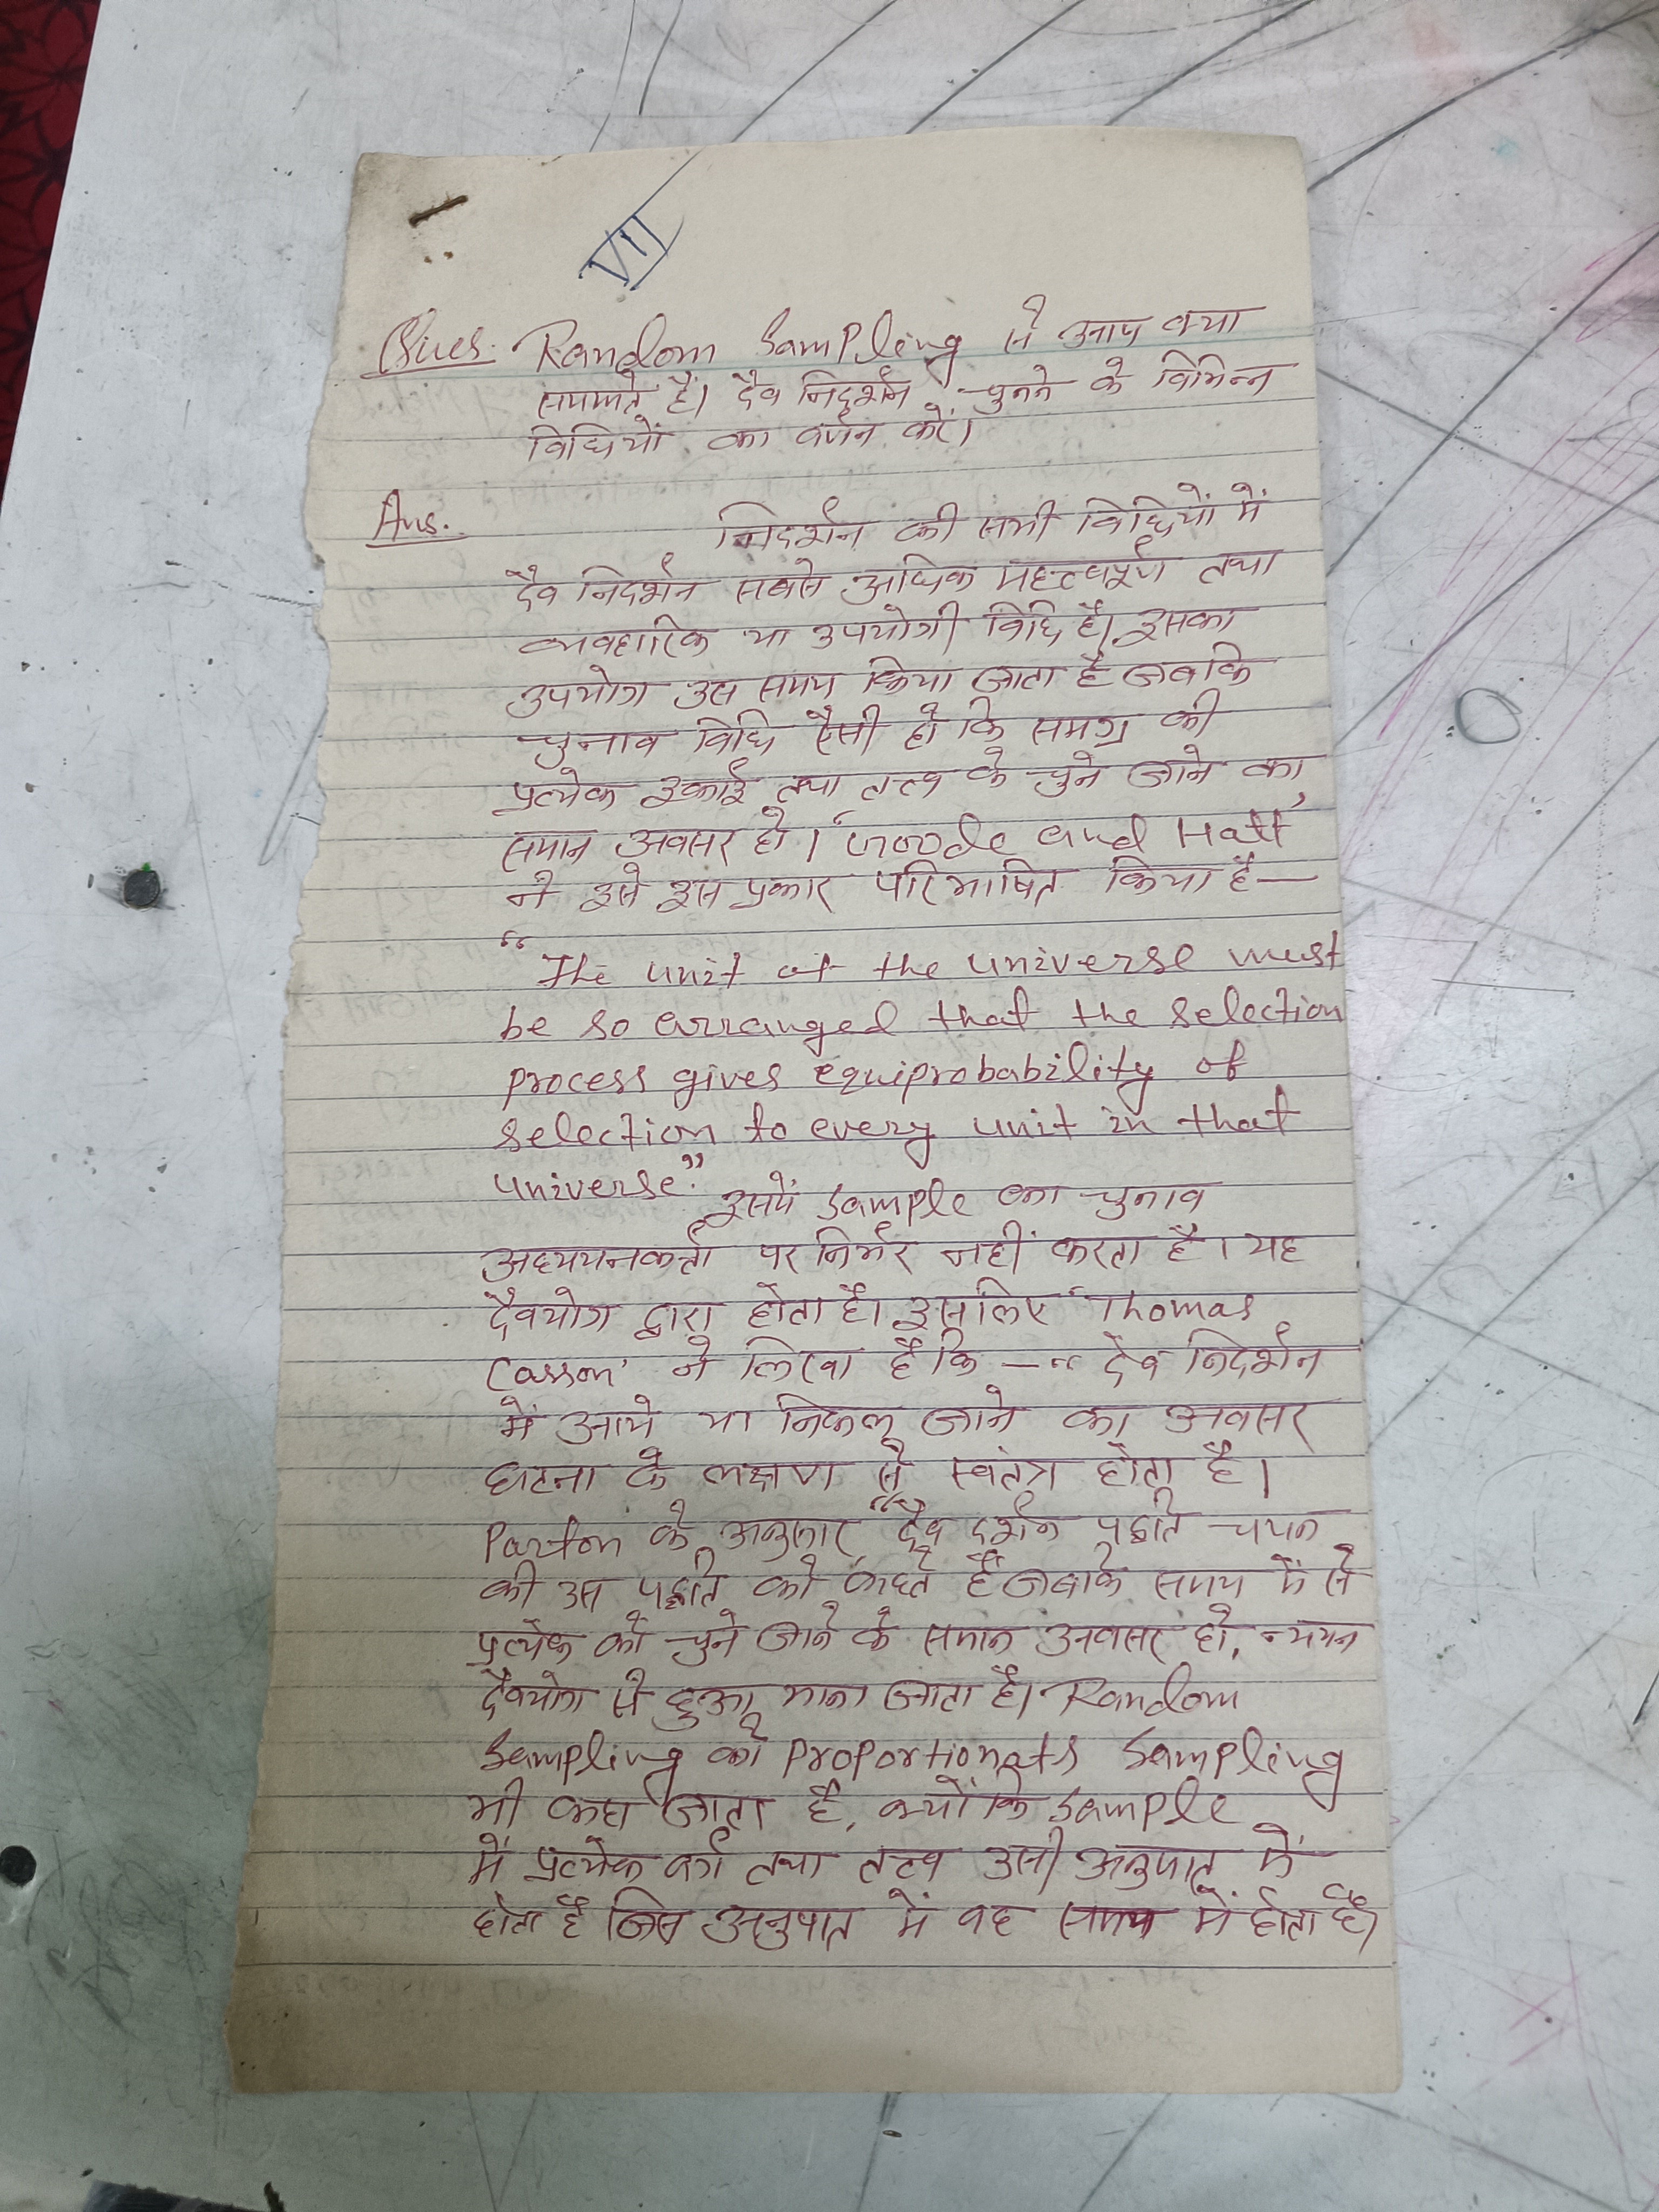 VII
Ques. Random Sampling से आप क्या
समझते हैं। दैव निदर्शन चुनने के विभिन्न
विधियों का वर्णन करें।
Ans. निदर्शन की सभी विधियों में
दैव निदर्शन सबसे अधिक महत्वपूर्ण तथा
व्यवहारिक या उपयोगी विधि है। इसका
उपयोग उस समय किया जाता है जबकि
चुनाव विधि ऐसी हो कि समग्र की
प्रत्येक इकाई तथा तत्व के चुने जाने का
समान अवसर हो। 'Goode and Hatt'
ने इसे इस प्रकार परिभाषित किया है —
"The unit of the universe must
be so arranged that the selection
process gives equiprobability of
selection to every unit in that
universe."
इसमें Sample का चुनाव
अध्ययनकर्त्ता पर निर्भर नहीं करता है। यह
दैवयोग द्वारा होता है। इसलिए 'Thomas
Carson' ने लिखा है कि — "दैव निदर्शन
में आये या निकल जाने का अवसर
घटना के लक्षण से स्वतंत्र होता है।
Parton के अनुसार, "दैव दर्शन पद्धति चयन
की उस पद्धति को कहते हैं जबकि समग्र में से
प्रत्येक को चुने जाने के समान अवसर हो, चयन
दैवयोग से हुआ माना जाता है। Random
Sampling को Proportionate Sampling
भी कहा जाता है, क्योंकि Sample
में प्रत्येक वर्ग तथा तत्व उसी अनुपात में
होता है जिस अनुपात में वह समग्र में होता है।